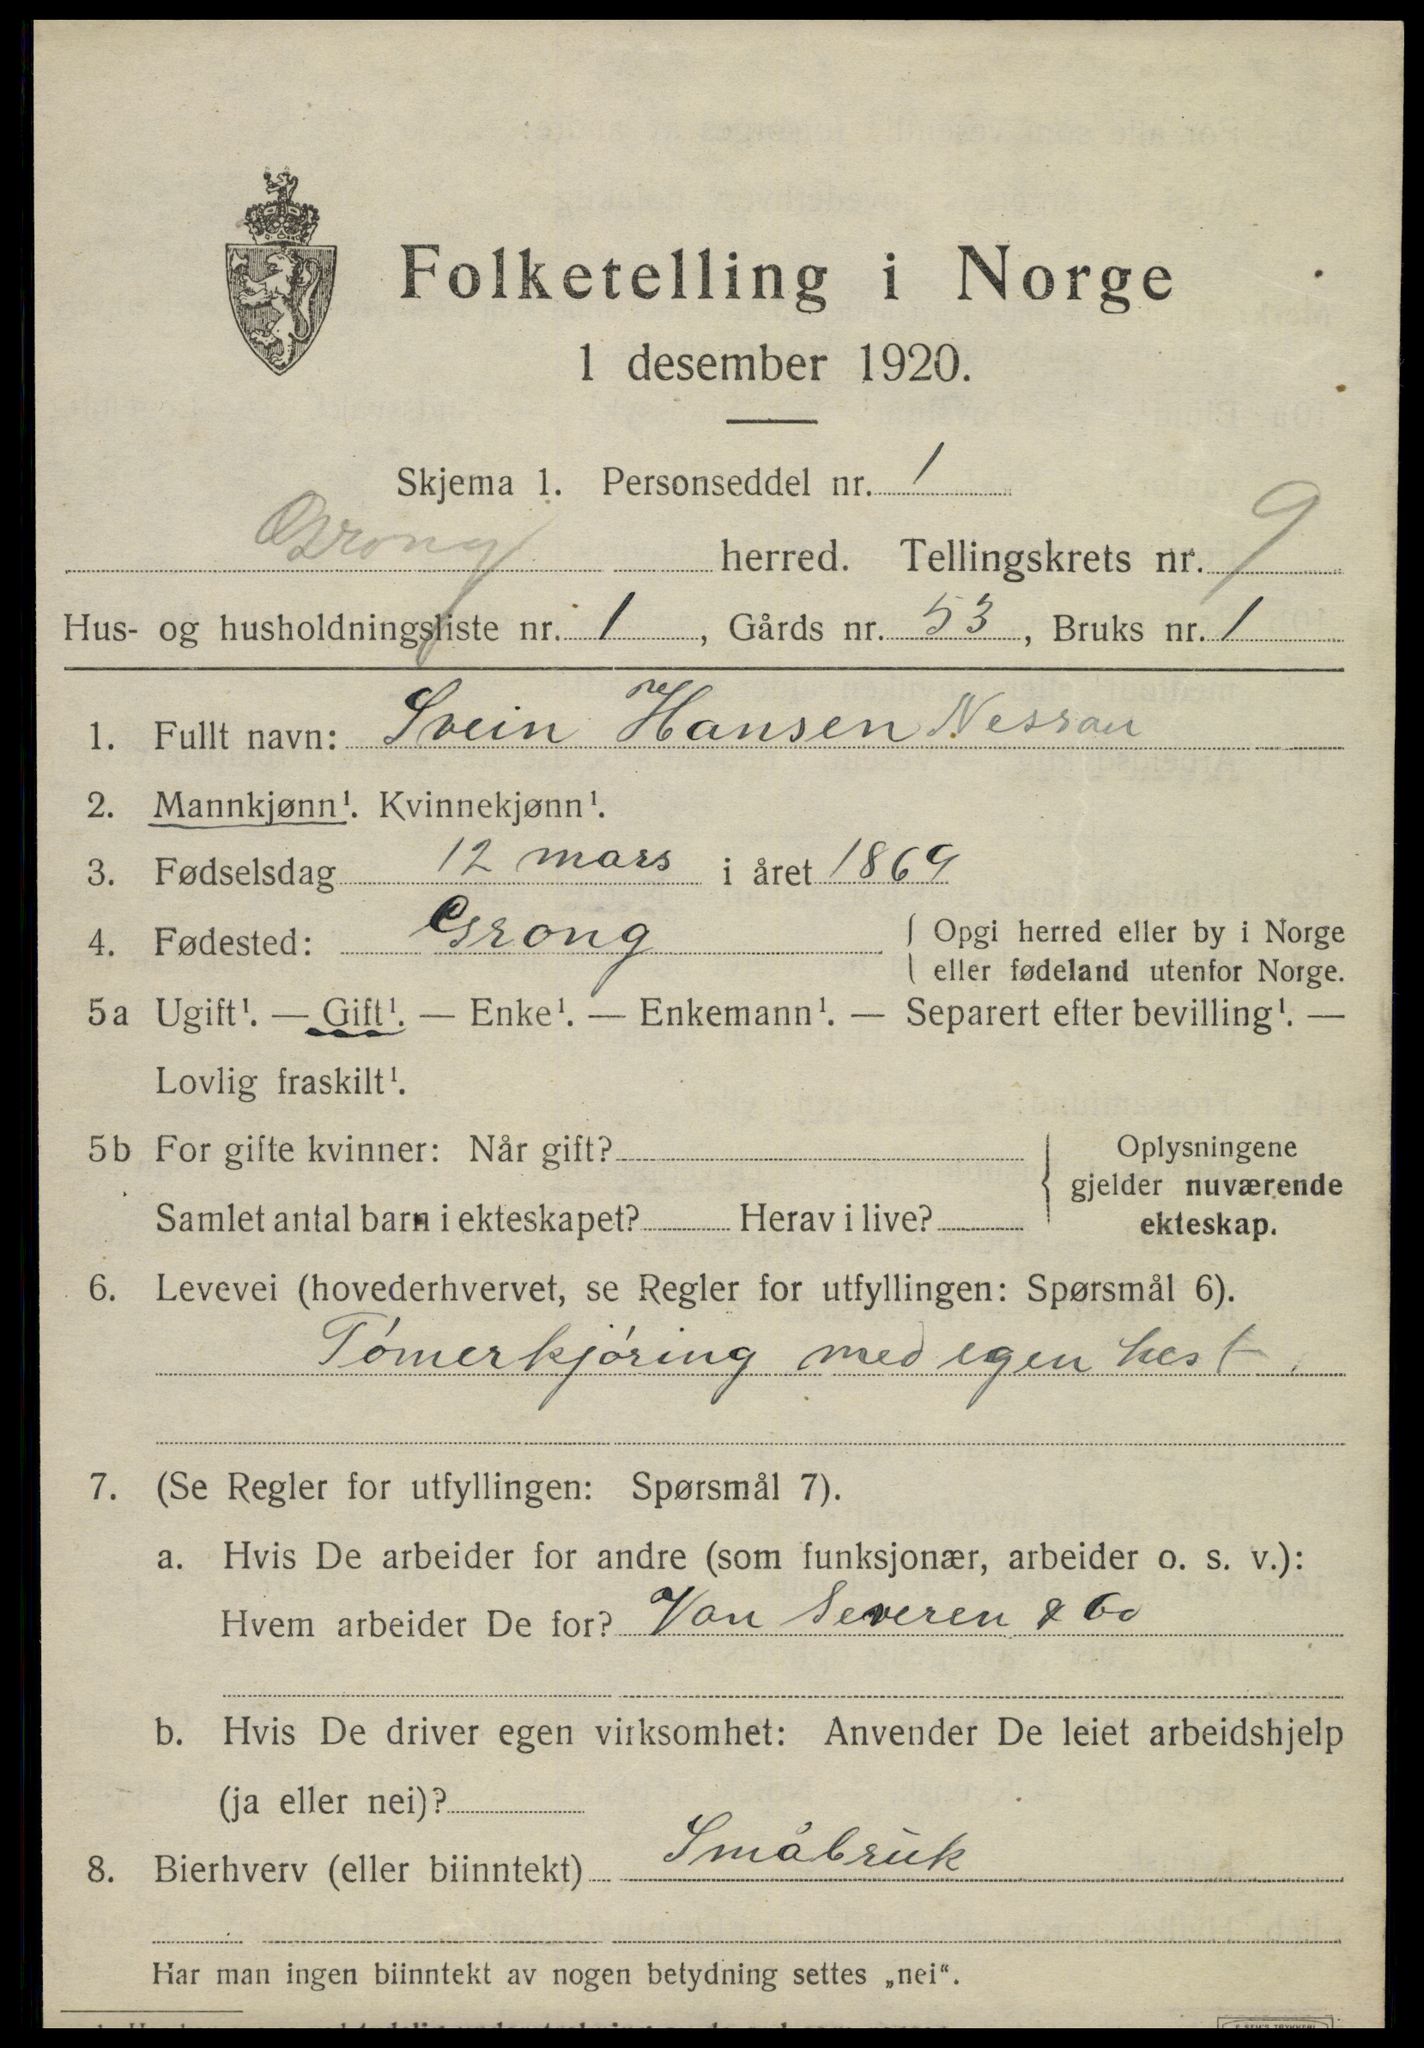 Folketelling i Norge
1 desember 1920.
Skjema 1. Personseddel nr. 1
Grong herred. Tellingskrets nr. 9
Hus- og husholdningsliste nr. 1, Gårds nr. 53, Bruks nr. 1
1. Fullt navn: Svein Hansen Nesvau
2. Mannkjønn¹. Kvinnekjønn¹.
3. Fødselsdag 12 mars i året 1869
4. Fødested: Grong { Opgi herred eller by i Norge
eller fødeland utenfor Norge.
5a Ugift¹. — Gift¹. — Enke¹. — Enkemann¹. — Separert efter bevilling¹. —
Lovlig fraskilt¹.
5b For gifte kvinner: Når gift? { Oplysningene
gjelder nuværende
Samlet antal barn i ekteskapet? Herav i live? ekteskap.
6. Levevei (hovederhvervet, se Regler for utfyllingen: Spørsmål 6).
Tømerkjøring med egen hest.
7. (Se Regler for utfyllingen: Spørsmål 7).
a. Hvis De arbeider for andre (som funksjonær, arbeider o. s. v.):
Hvem arbeider De for? Van Severen & Co
b. Hvis De driver egen virksomhet: Anvender De leiet arbeidshjelp
(ja eller nei)?
8. Bierhverv (eller biinntekt) Småbruk
Har man ingen biinntekt av nogen betydning settes „nei“.